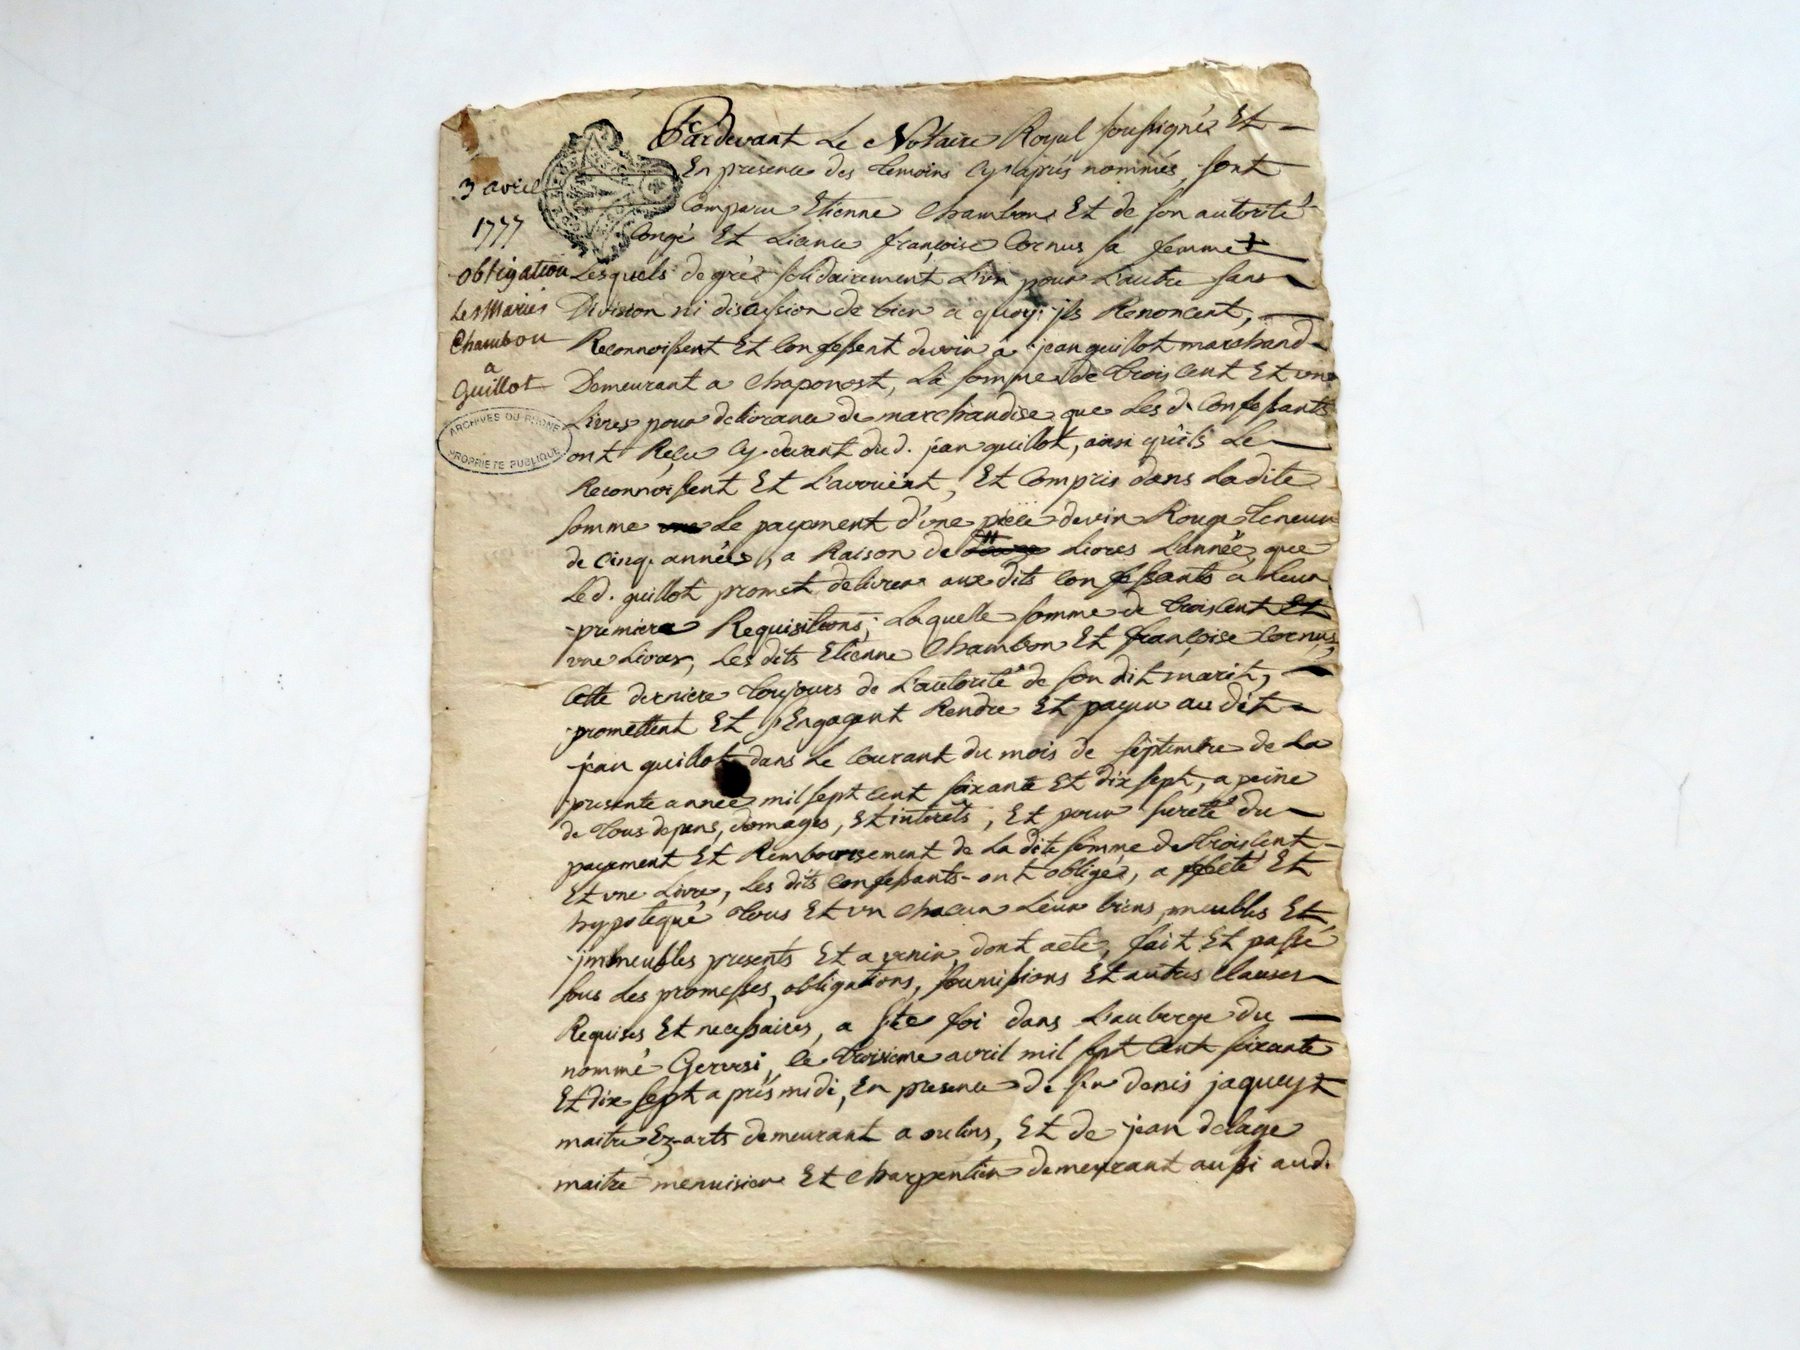 Pardevant Le Notaire Royal soussigné Et
En presence des temoins cy aprés nommés, sont
3 avril
Comparu Etienne Chambon Et de son autorité
1777
Congé Et Licence françoise Cornus sa femme
obligation
Lesquels de gré solidairement L'un pour L'autre sans
Les Mariés
Division ni discussion de bien a quoy ils Renoncent,
Chambon
Reconnoissent Et Confessent devoir a jean guillot marchand
a
Guillot
Demeurant a Chaponost, La somme de trois cent Et une
ARCHIVES DU RHONE
PROPRIETE PUBLIQUE
Livres pour delivrance de marchandise que Les d. Confessants
ont Reçu cy devant dud. jean guillot, ainsi qu'ils Le
Reconnoissent Et L'avouent, Et Compris dans La dite
somme Le payement d'une piece de vin Rouge teneur
de cinq années, a Raison de Livres L'année, que
Le d. guillot promet delivrer aux dits Confessants a Leur
premiere Requisitions; Laquelle somme de trois cent Et
une Livres, Les dits Etienne Chambon Et françoise Cornus,
Cette derniere toujours de L'autorité de son dit marit,
promettent Et s'Engagent Rendre Et payer au dit
jean guillot dans Le Courant du mois de septembre de La
presente année mil sept cent soixante Et dix sept, a peine
de tous depens, domages, Et interêts, Et pour sureté du
payement Et Remboursement de La dite somme de trois cent
Et une Livre, Les dits Confessants ont obligés, affecté Et
hypotequé tous Et un chacun Leur biens meubles Et
immeubles presents Et avenir, dont acte, fait Et passé
sous Les promesses, obligations, soumissions Et autres Clauses
Requises Et necessaires, a Ste foi dans L'auberge du
nommé Gervesi, Le troisieme avril mil sept Cent soixante
Et dix sept aprés midi, En presence de sr denis jaqueyt
maitre Ez-arts demeurant a oulins, Et de jean delage
maitre menuisier Et Charpentier demeurant aussi aud.